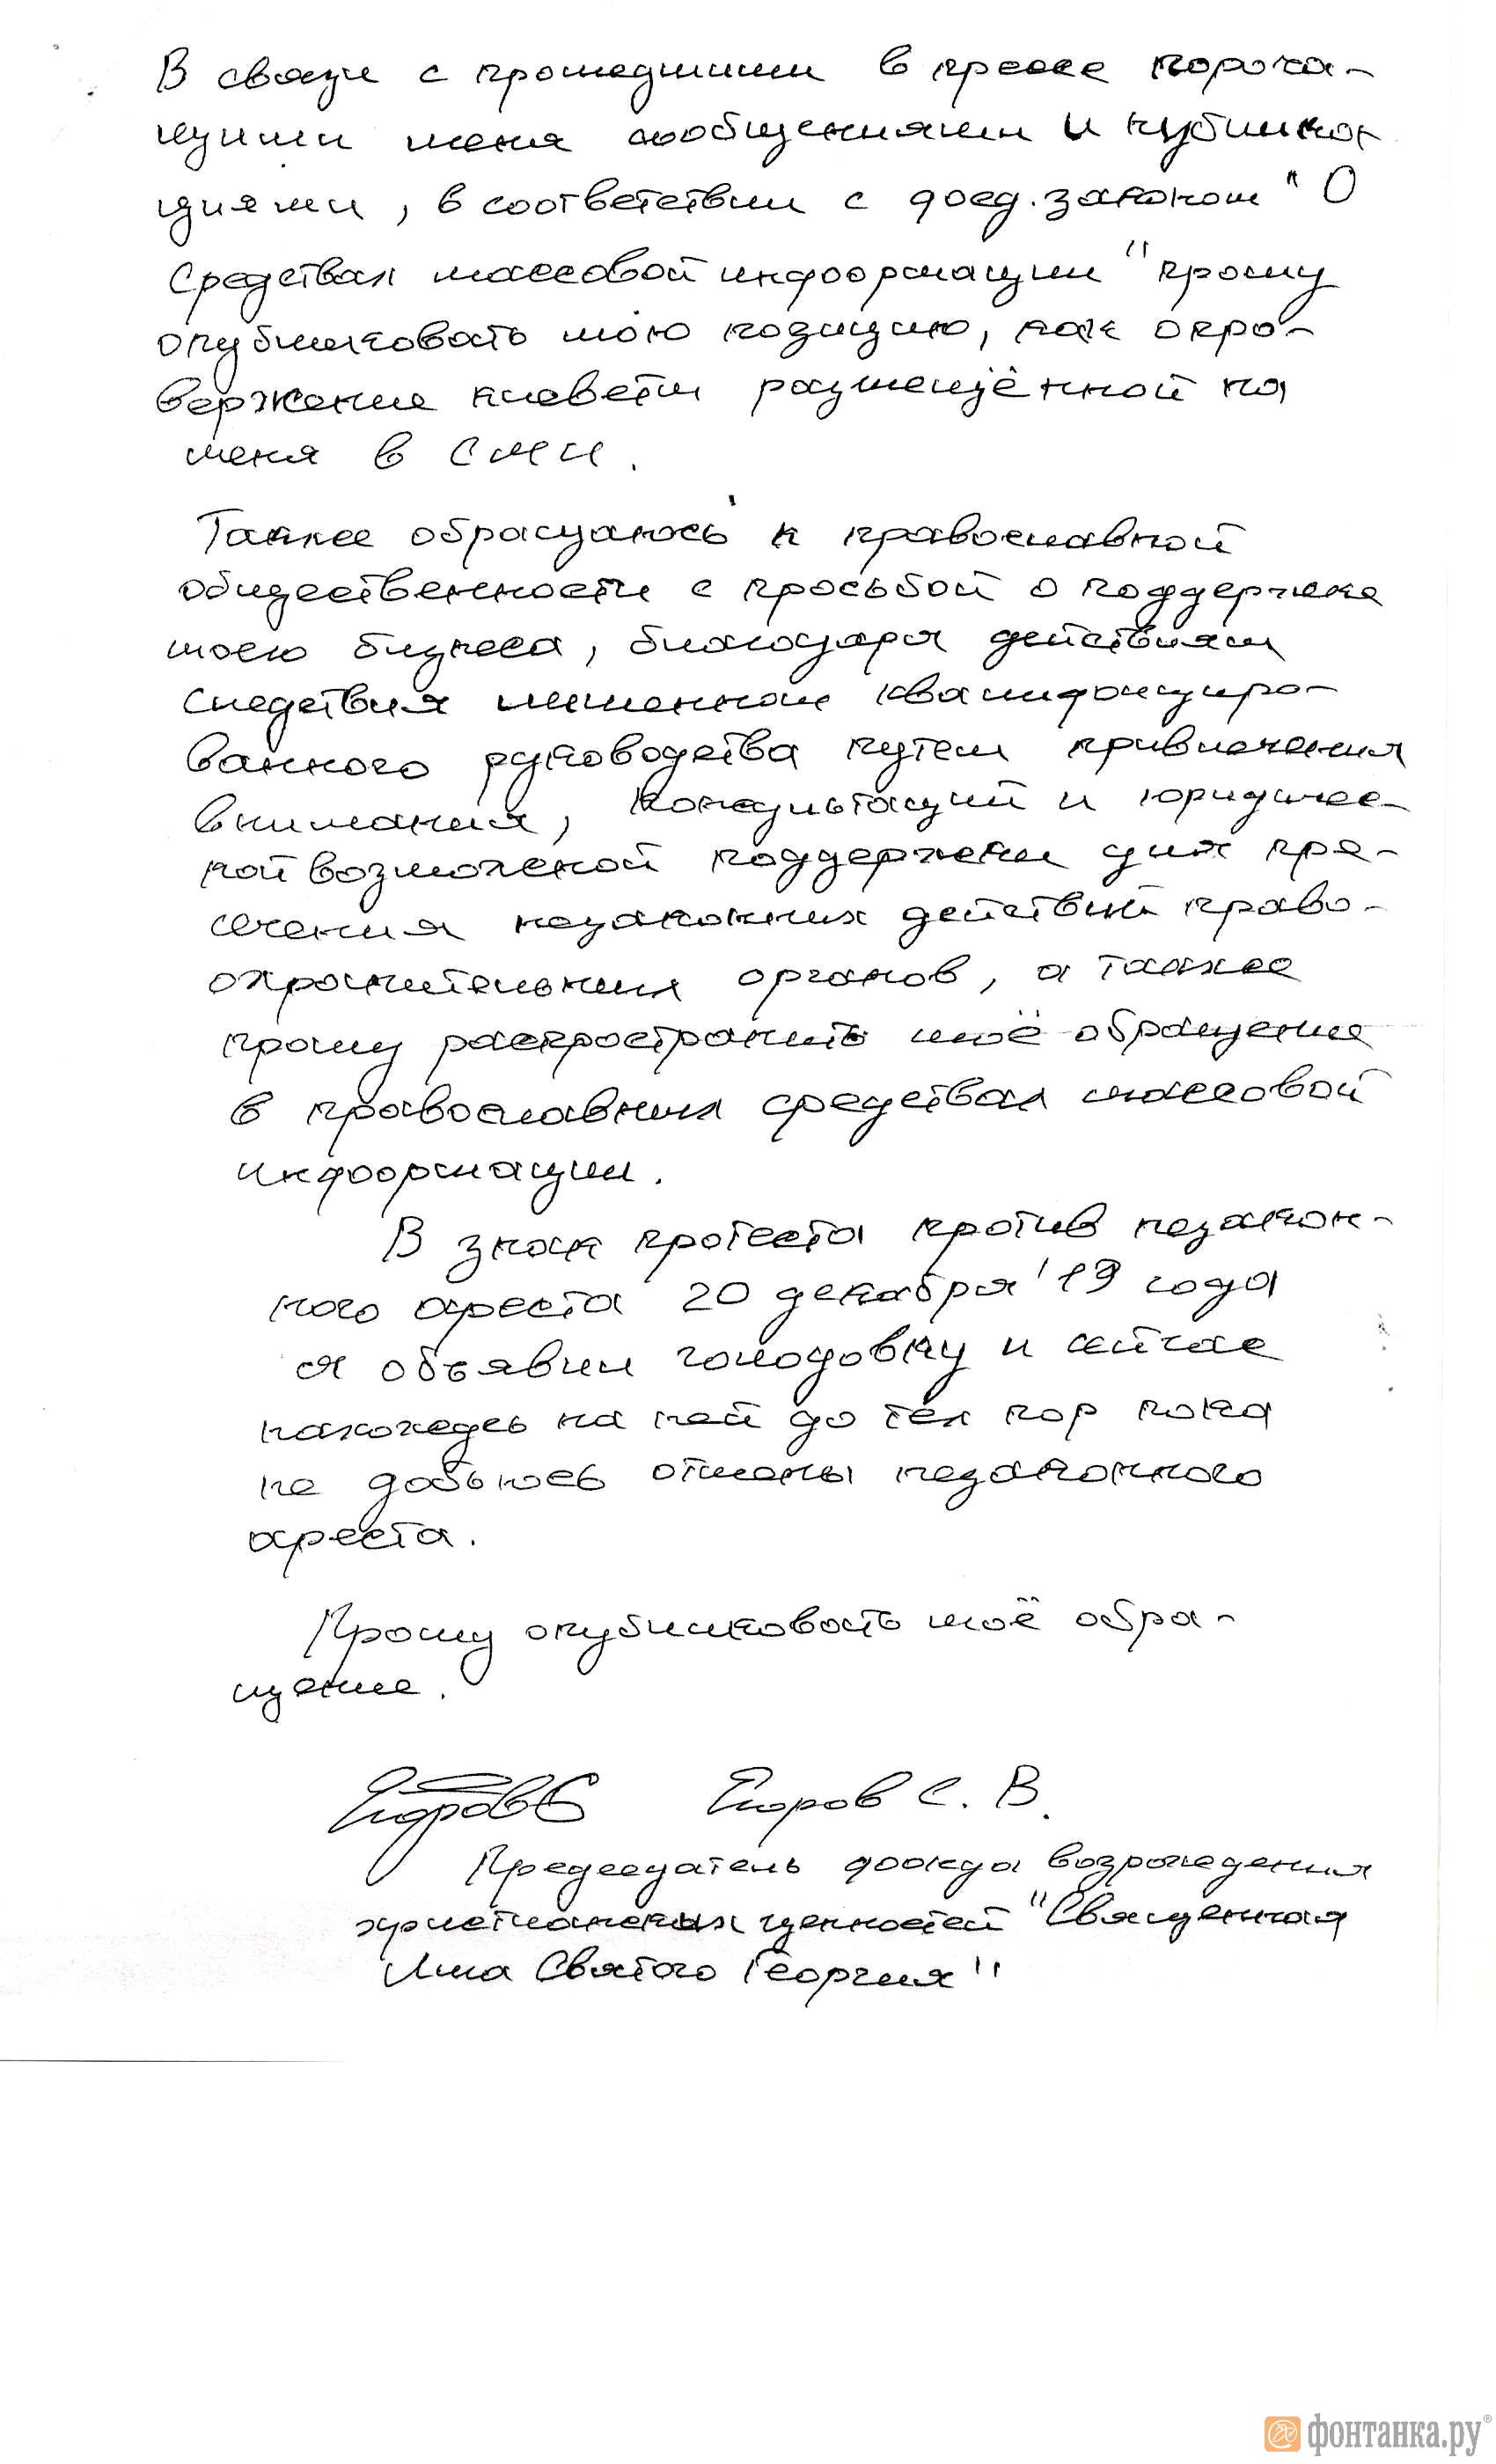 В связи с прошедшими в прессе пороча-
щими меня сообщениями и публика-
циями, в соответствии с фед. законом "О
Средствах массовой информации" прошу
опубликовать мою позицию, как опро-
вержение клеветы размещённой на
меня в СМИ.
Также обращаюсь к православной
общественности с просьбой о поддержке
моего бизнеса, благодаря действиям
следствия лишенном квалифициро-
ванного руководства путем привлечения
внимания, консультаций и юридичес-
кой возможной поддержки для пре-
сечения незаконных действий право-
охранительных органов, а также
прошу распространить моё обращение
в православных средствах массовой
информации.
В знак протеста против незакон-
ного ареста 20 декабря '19 года
я объявил голодовку и сейчас
нахожусь на ней до тех пор пока
не добьюсь отмены незаконного
ареста.
Прошу опубликовать моё обра-
щение.
Егоров С. В.
Председатель фонда возрождения
христианских ценностей "Священная
Лига Святого Георгия"
фонтанка.ру®